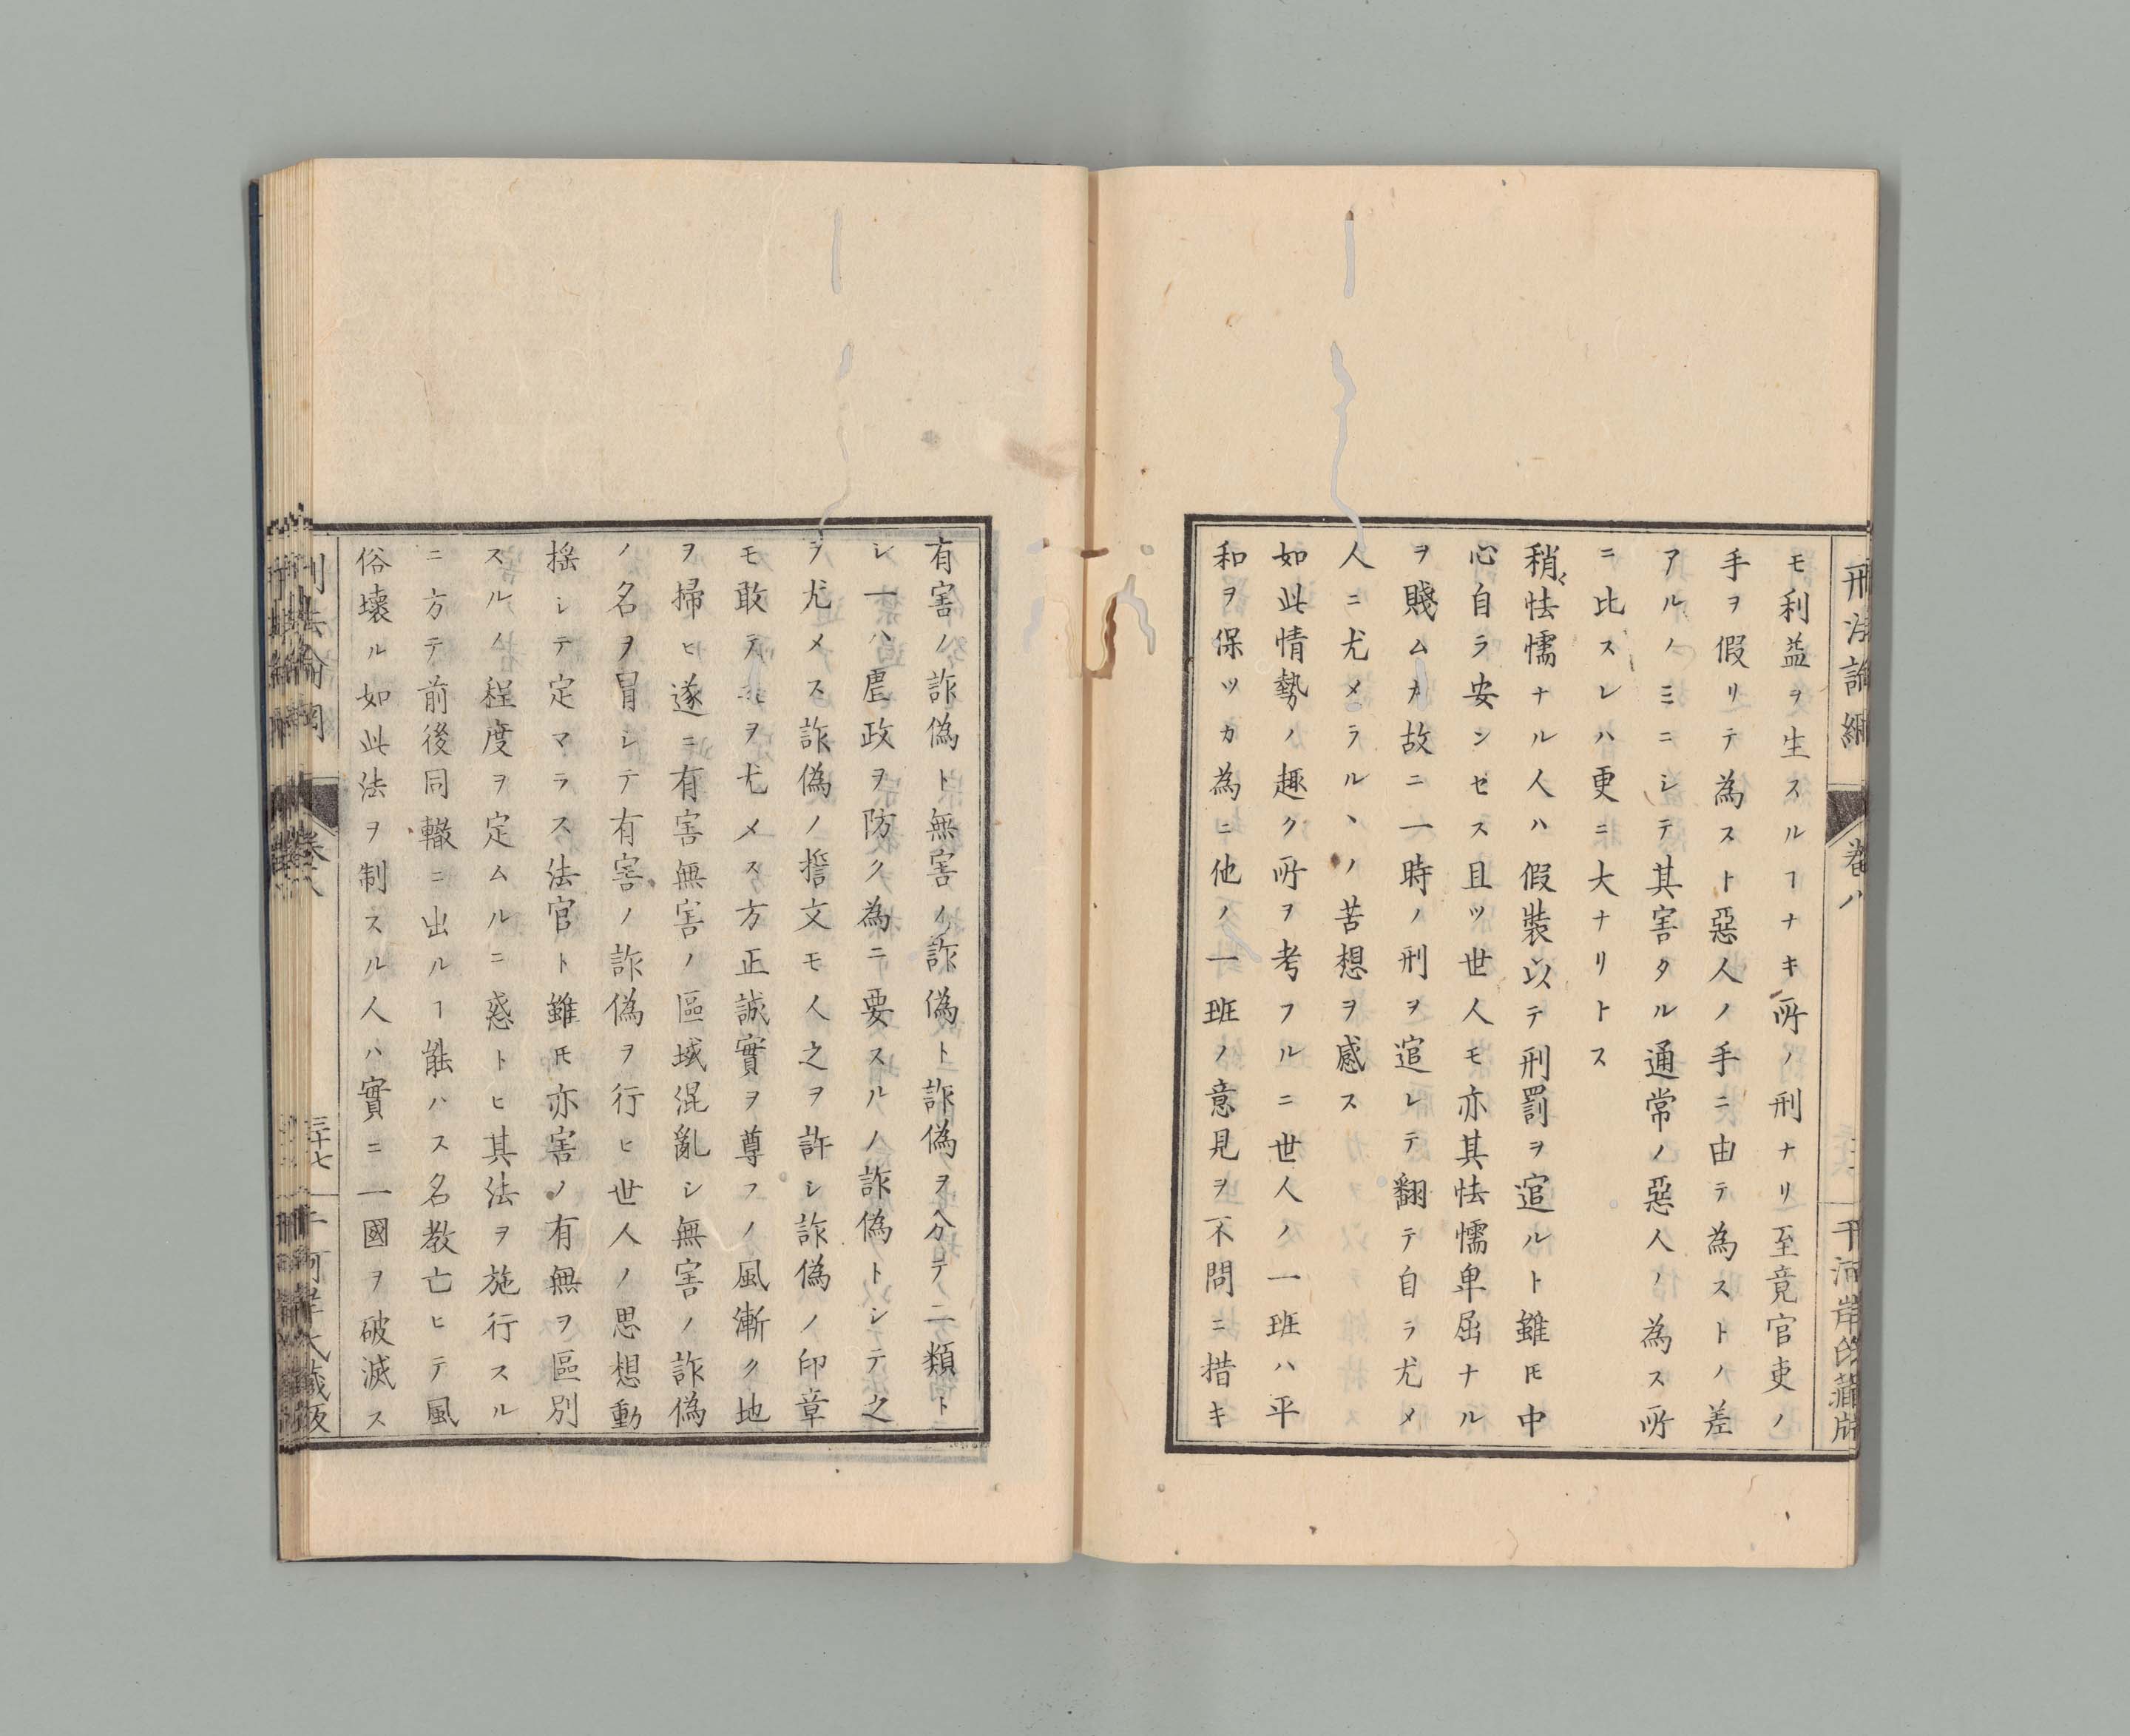 刑法論綱
卷八
モ利益ヲ生スルヿナキ所ノ刑ナリ至竟官吏ノ
手ヲ假リテ為スト惡人ノ手ニ由テ為ストノ差
アルノミニシテ其害タル通常ノ惡人ノ為ス所
ニ比スレハ更ニ大ナリトス
稍〻怯懦ナル人ハ假裝以テ刑罰ヲ逭ルト雖𪜈中
心自ラ安シセス且ツ世人モ亦其怯懦卑屈ナル
ヲ賤ムカ故ニ一時ノ刑ヲ逭レテ翻テ自ラ尤メ
人ニ尤メラルヽノ苦想ヲ感ス
如此情勢ノ趣ク所ヲ考フルニ世人ノ一班ハ平
和ヲ保ツカ為ニ他ノ一班ノ意見ヲ不問ニ措キ
有害ノ詐偽ト無害ノ詐偽ト詐偽ヲ分テ二類ト
シ一ハ虐政ヲ防ク為ニ要スルノ詐偽トシテ之
ヲ尤メス詐偽ノ誓文モ人之ヲ許シ詐偽ノ印章
モ敢テ之ヲ尤メス方正誠實ヲ尊フノ風漸ク地
ヲ掃ヒ遂ニ有害無害ノ區域混亂シ無害ノ詐偽
ノ名ヲ冒シテ有害ノ詐偽ヲ行ヒ世人ノ思想動
搖シテ定マラス法官ト雖𪜈亦害ノ有無ヲ區別
スルノ程度ヲ定ムルニ惑トヒ其法ヲ施行スル
ニ方テ前後同轍ニ出ルヿ能ハス名教亡ヒテ風
俗壞ル如此法ヲ制スル人ハ實ニ一國ヲ破滅ス
卷八
三十七